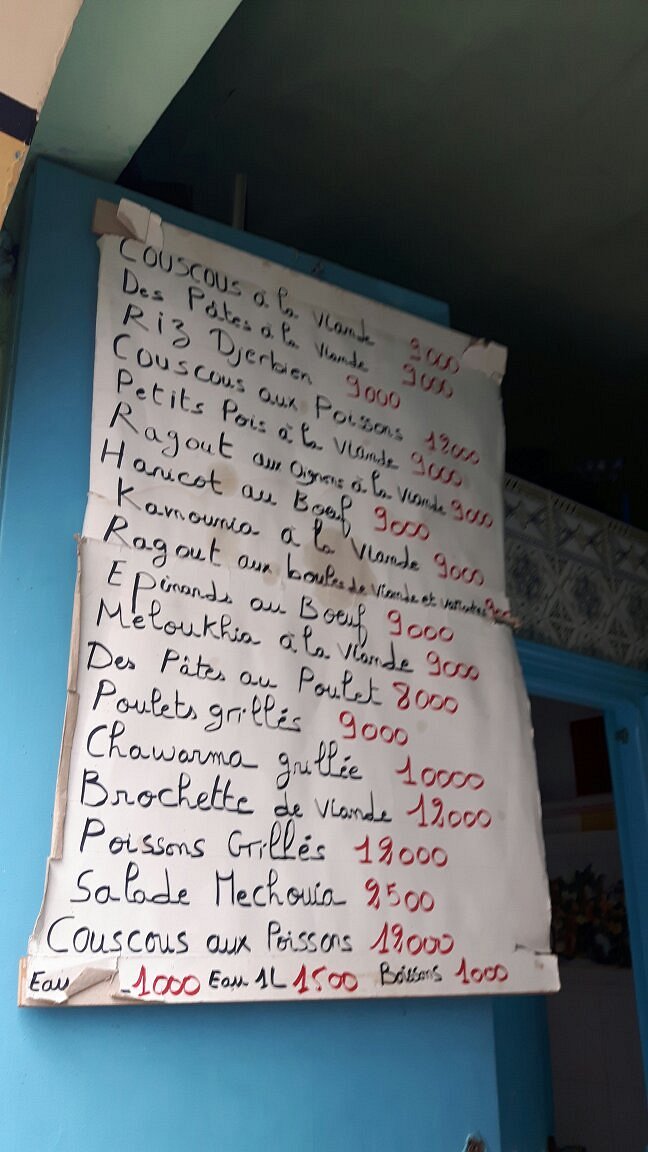 Couscous à la Viande 9000
Des Pâtes à la Viande 9000
Riz Djerbien 9000
Couscous aux Poissons 12000
Petits Pois à la Viande 9000
Ragout aux Oignons à la Viande 9000
Haricot au Bœuf 9000
Kamounia à la Viande 9000
Ragout aux boules de Viande et
Epinards au Boeuf 9000
Meloukhia à la Viande 9000
Des Pâtes au Poulet 8000
Poulets grillés 9000
Chawarma grillée 10000
Brochette de Viande 12000
Poissons Grillés 12000
Salade Mechouia 2500
Couscous aux Poissons 12000
Eau 1000 Eau 1L 1500 Boissons 1000